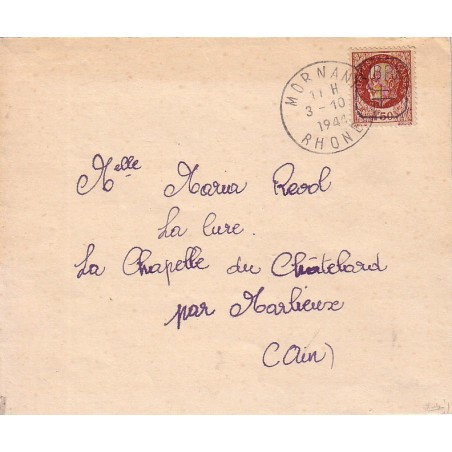 MORNANT
11 H
3-10
1944
RHONE
1F50
Melle Maria Revol
La Cure.
La Chapelle du Châtelard
par Marlieux
(Ain)